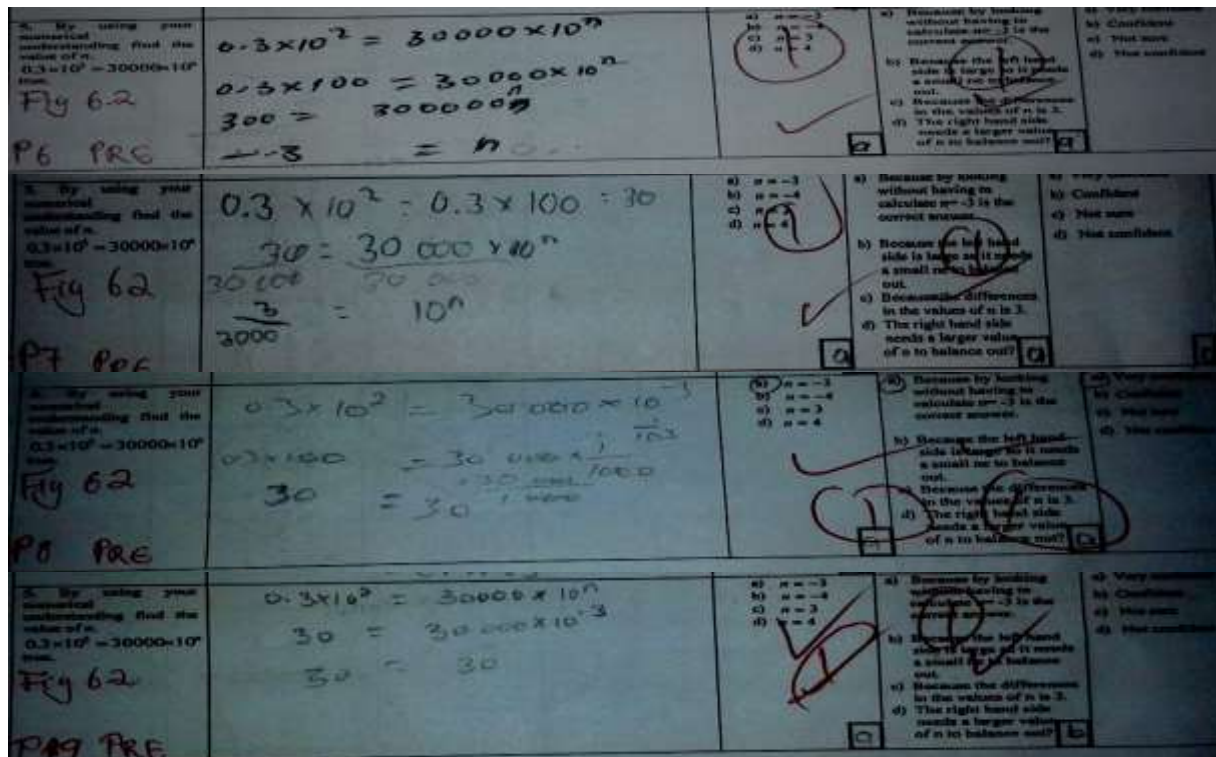 5. By using your
numerical
understanding find the
value of n.
0.3×10² = 30000×10ⁿ
true.
Fig 6.2
P6 PRE
0.3×10² = 30000×10ⁿ
0.3×100 = 30000×10ⁿ
300 = 300000ⁿ
-3 = n
a) n = -3
b) n = -4
c) n = 3
d) n = 4
a
a) Because by looking
without having to
calculate n= -3 is the
correct answer.
b) Because the left hand
side is large so it needs
a small no to balance
out.
c) Because the differences
in the values of n is 3.
d) The right hand side
needs a larger value
of n to balance out?
a
a) Very
b) Confident
c) Not sure
d) Not confident
5. By using your
numerical
understanding find the
value of n.
0.3×10² = 30000×10ⁿ
true.
Fig 6.2
P7 PRE
0.3 × 10² = 0.3 × 100 = 30
30 = 30 000 × 10ⁿ
30 000 30 000
3 = 10ⁿ
3000
a) n = -3
b) n = -4
c) n = 3
d) n = 4
a
a) Because by looking
without having to
calculate n= -3 is the
correct answer.
b) Because the left hand
side is large so it needs
a small no to balance
out.
c) Because the differences
in the values of n is 3.
d) The right hand side
needs a larger value
of n to balance out?
a
b) Confident
c) Not sure
d) Not confident
5. By using your
numerical
understanding find the
value of n.
0.3×10² = 30000×10ⁿ
true.
Fig 6.2
P8 PRE
× 10² = 30 000 × 10⁻³
30 = 30
a) n = -3
b) n = -4
c) n = 3
d) n = 4
a) Because by looking
without having to
calculate n= -3 is the
correct answer.
b) Because the left hand
side is large so it needs
a small no to balance
out.
c) Because the differences
in the values of n is 3.
d) The right hand side
needs a larger value
of n to balance out?
a) Very
b) Confident
c) Not sure
5. By using your
numerical
understanding find the
value of n.
0.3×10² = 30000×10ⁿ
true.
Fig 6.2
PRE
0.3×10² = 30000 × 10ⁿ
30 = 30 000×10⁻³
30 = 30
a) n = -3
b) n = -4
c) n = 3
d) n = 4
a
a) Because by looking
without having to
calculate n= -3 is the
correct answer.
b) Because the left hand
side is large so it needs
a small no to balance
out.
c) Because the differences
in the values of n is 3.
d) The right hand side
needs a larger value
of n to balance out?
b
a) Very
b) Confident
c) Not sure
d) Not confident